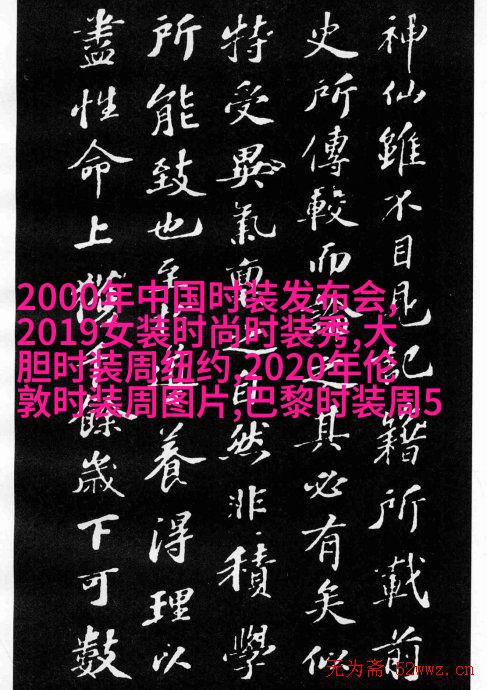 神仙雖不目見記籍所載前
史所傳較而論之其必有矣似
特受異氣稟之自然非積學
所能致也至養得理以
盡性命上獲餘歲下可數
2000年中国时装发布会,
2019女装时尚时装秀,大
胆时装周纽约,2020年伦
敦时装周图片,巴黎时装周5
无为斋·52wwz.cn